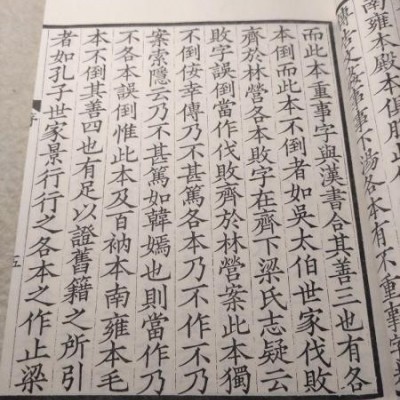 傳詰文
事下湯各本有不重事字
南雍本殿本俱脫此
而此本重事字與漢書合其善三也有各
本倒而此本不倒者如吳太伯世家伐敗
齊於林營各本敗字在齊下梁氏志疑云
敗字誤倒當作伐敗齊於林營案此本獨
不倒佞幸傳乃不甚篤各本乃不作不乃
案索隱云乃不甚篤如韓嫣也則當作乃
不各本誤倒惟此本及百衲本南雍本毛
本不倒其善四也有足以證舊籍之所引
者如孔子世家景行行之各本之作止梁
序
五